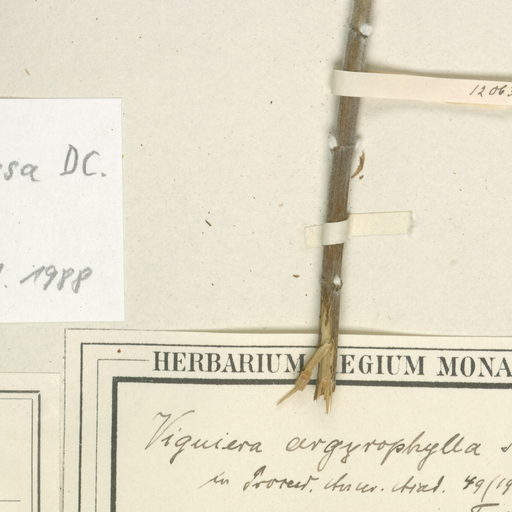 12063
sa DC.
1988
HERBARIUM EGIUM MONA
Viguiera argyrophylla s
in Proceed. Amer. Acad. 49 (19